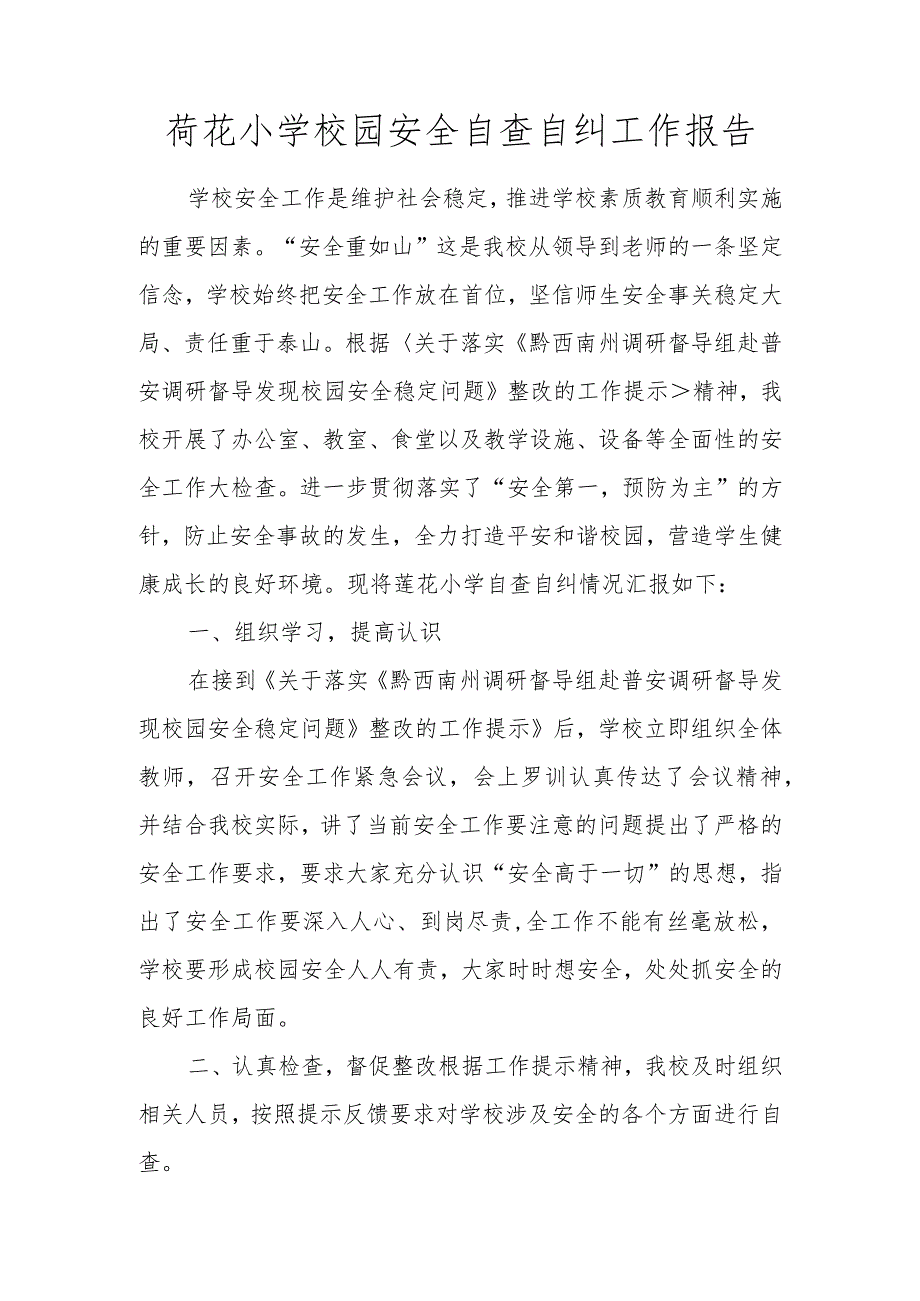 荷花小学校园安全自查自纠工作报告
学校安全工作是维护社会稳定，推进学校素质教育顺利实施
的重要因素。“安全重如山”这是我校从领导到老师的一条坚定
信念，学校始终把安全工作放在首位，坚信师生安全事关稳定大
局、责任重于泰山。根据〈关于落实《黔西南州调研督导组赴普
安调研督导发现校园安全稳定问题》整改的工作提示＞精神，我
校开展了办公室、教室、食堂以及教学设施、设备等全面性的安
全工作大检查。进一步贯彻落实了“安全第一，预防为主”的方
针，防止安全事故的发生，全力打造平安和谐校园，营造学生健
康成长的良好环境。现将莲花小学自查自纠情况汇报如下：
一、组织学习，提高认识
在接到《关于落实《黔西南州调研督导组赴普安调研督导发
现校园安全稳定问题》整改的工作提示》后，学校立即组织全体
教师，召开安全工作紧急会议，会上罗训认真传达了会议精神，
并结合我校实际，讲了当前安全工作要注意的问题提出了严格的
安全工作要求，要求大家充分认识“安全高于一切”的思想，指
出了安全工作要深入人心、到岗尽责,全工作不能有丝毫放松，
学校要形成校园安全人人有责，大家时时想安全，处处抓安全的
良好工作局面。
二、认真检查，督促整改根据工作提示精神，我校及时组织
相关人员，按照提示反馈要求对学校涉及安全的各个方面进行自
查。